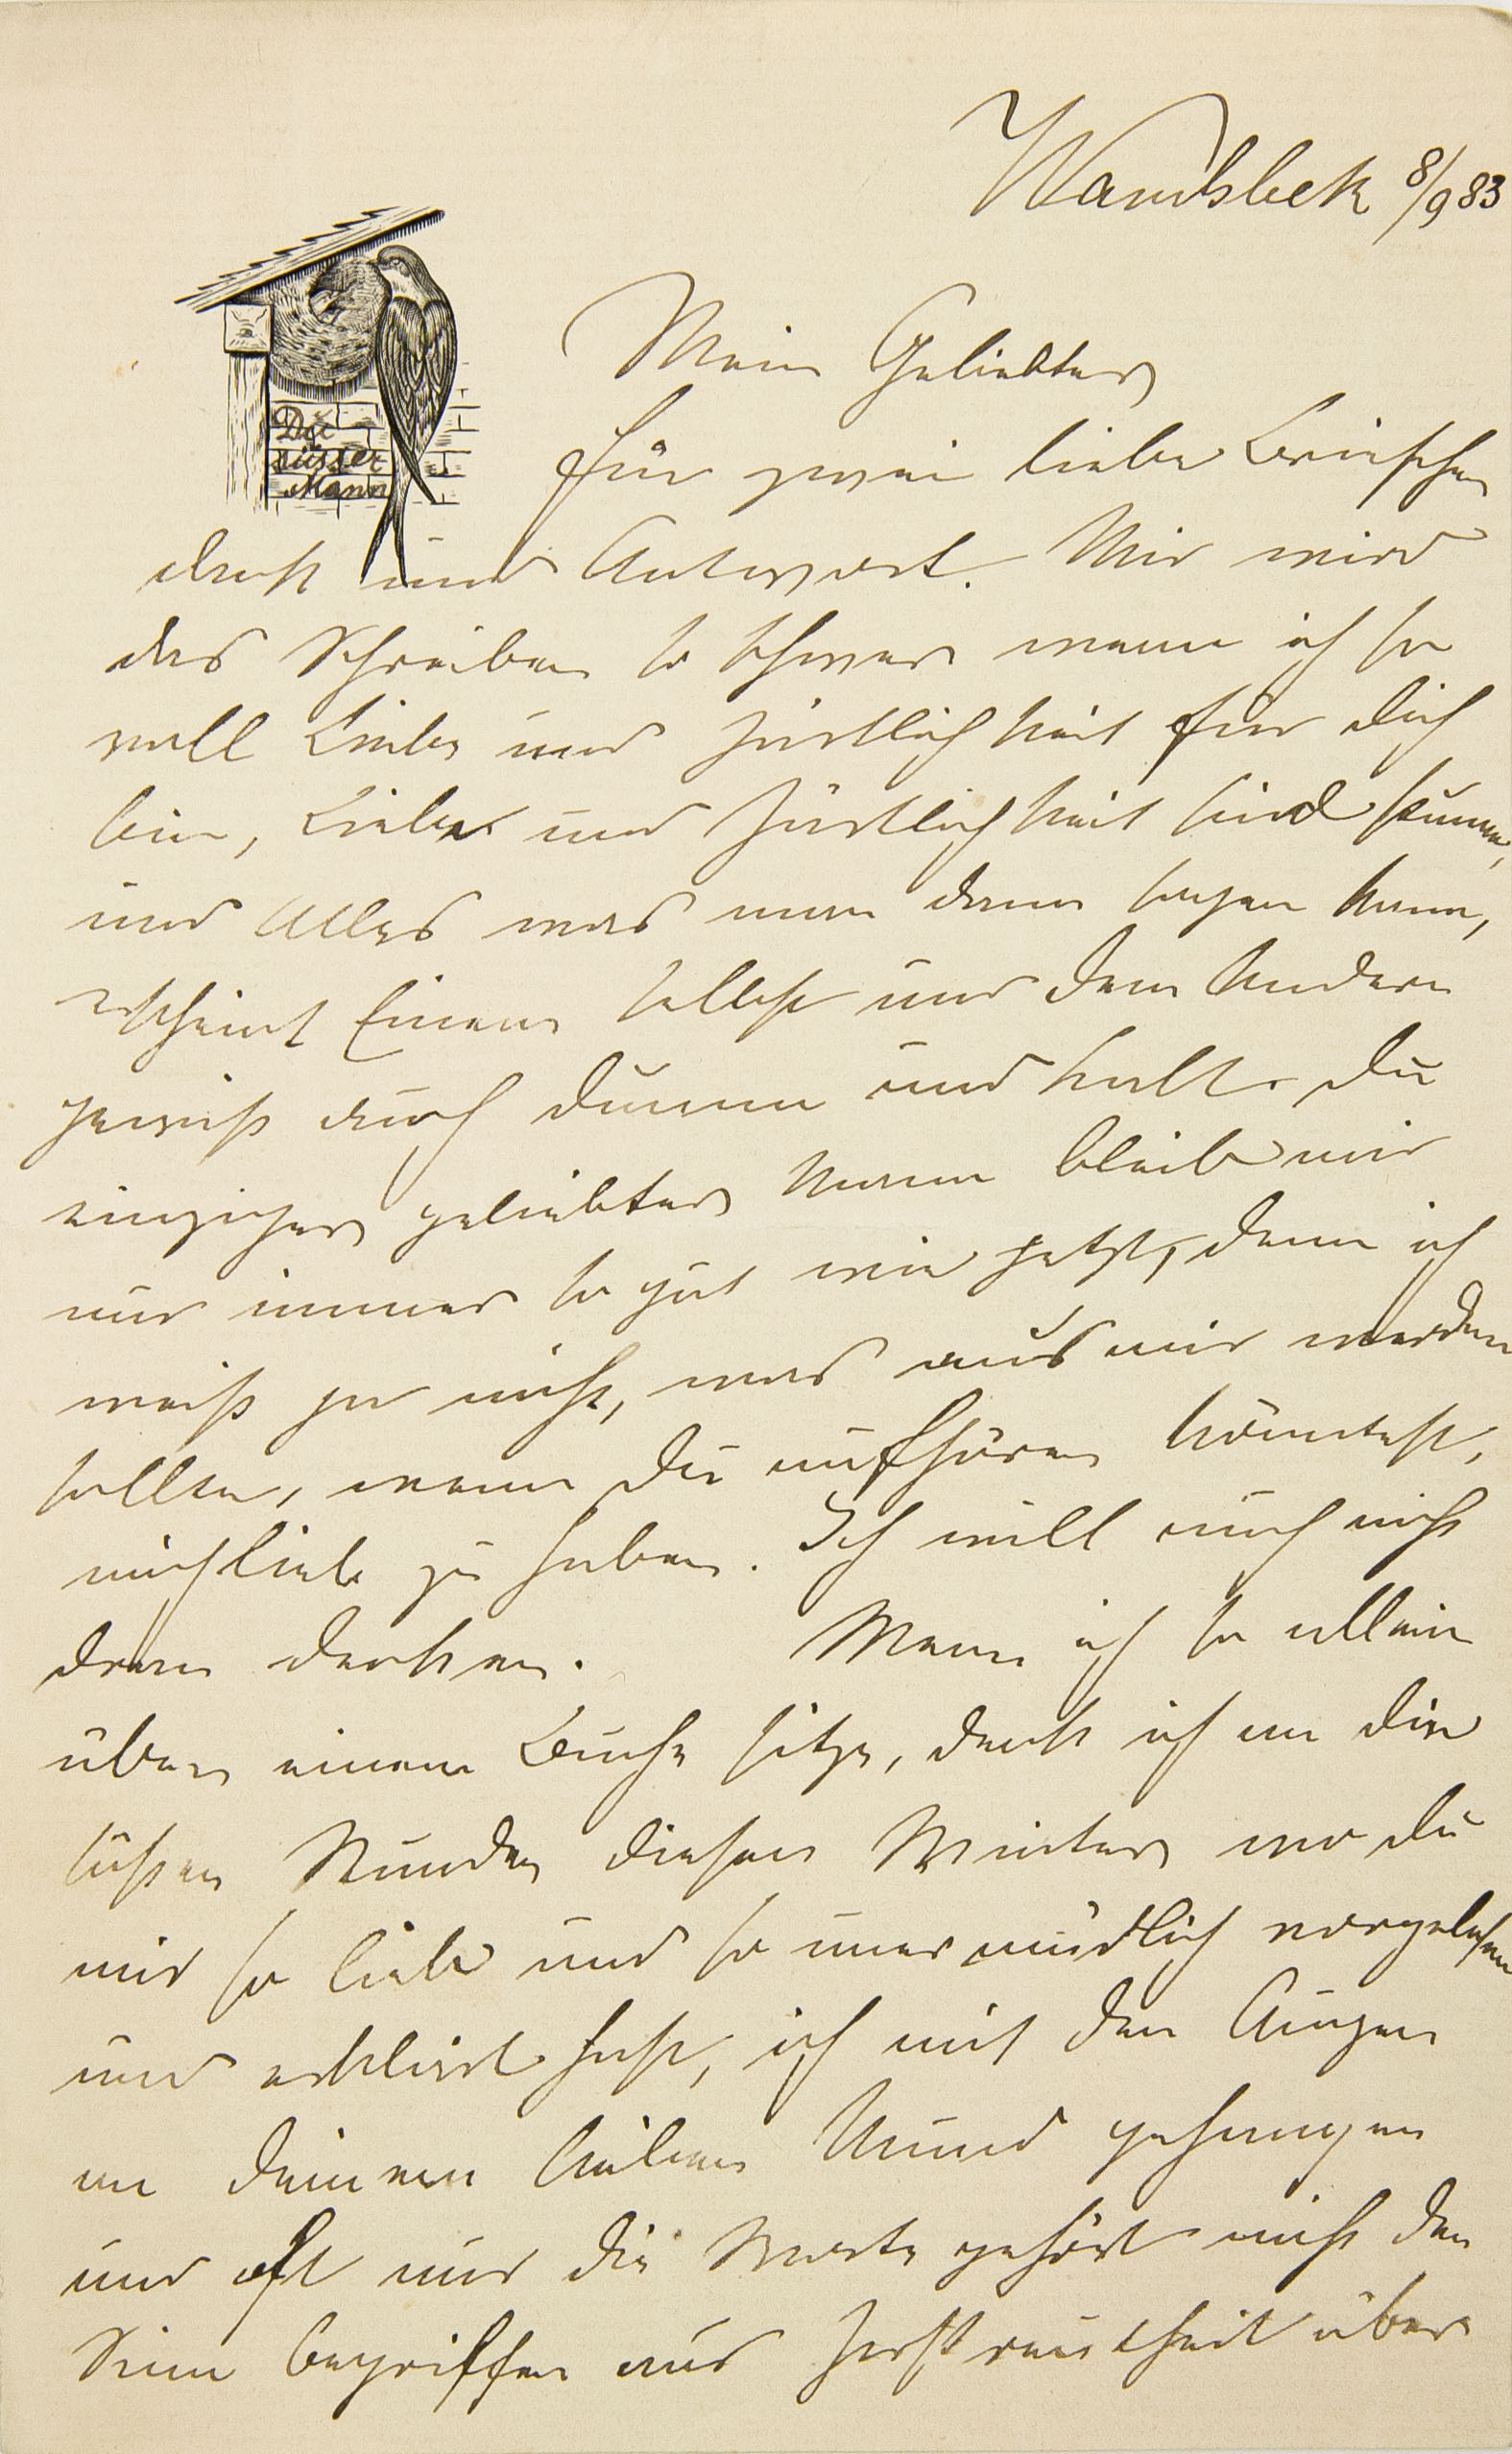 Wandsbek 8/9 83
Mein Geliebter
Du
süsser
Mann
für zwei liebe Briefchen
Dank und Antwort. Mir wird
das Schreiben so schwer wenn ich so
voll Liebe und Zärtlichkeit für Dich
bin, Liebe und Zärtlichkeit sind stumm,
und Alles was man dann sagen kann,
erscheint Einem selbst und dem Andern
gewiß auch dumm und kalt. Du
einziger geliebter Mann bleib mir
nur immer so gut wie jetzt, denn ich
weiß ja nicht, was aus mir werden
sollte, wenn Du aufhören könntest,
mich lieb zu haben. Ich will auch nicht
dran denken. Wenn ich so allein
über einem Buche sitze, denk ich an die
süßen Stunden dieses Winters wo Du
mir so lieb und so unermüdlich vorgelesen
und erklärt hast, ich mit den Augen
an Deinem lieben Mund gehangen
und oft nur die Worte gehört nicht den
Sinn begriffen aus Zerstreutheit über